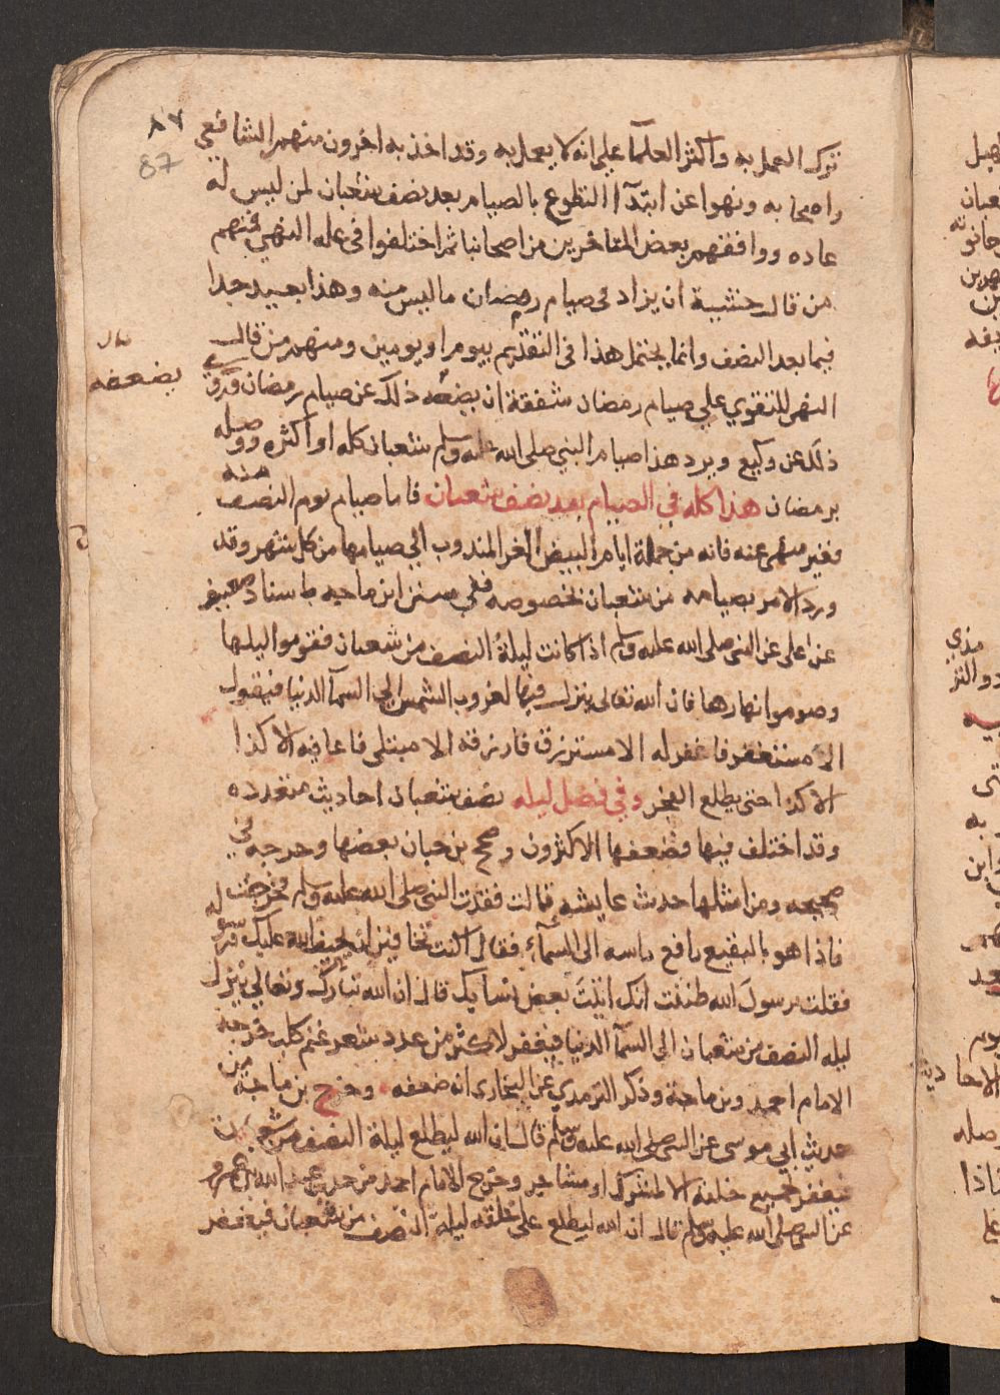 ٨٧
87
ترك العمل به واكثر العلمآ علي انه لا يعمل به وقد اخذ به اخرون منهم الشافعي
واصحابه ونهوا عن ابتدآ التطوع بالصيام بعد نصف شعبان لمن ليس له
عاده ووافقهم بعض المتاخرين من اصحابنا ثم اختلفوا في عله النهي فمنهم
من قال خشية ان يزاد في صيام رمضان ما ليس منه وهذا بعيد جدا
فيما بعد النصف وانما يحتمل هذا في التقديم بيوم او يومين ومنهم من قال
النهي للتقوي علي صيام رمضان شفقة ان يضعفه ذلك عن صيام رمضان وروي
يضعفه
ذلك عن وكيع ويرد هذا صيام النبي صلى الله عليه وسلم شعبان كله او اكثره ووصله
برمضان هذا كله في الصيام بعد نصف شعبان فاما صيام يوم النصف منه
فغير منهي عنه فانه من جملة ايام البيض الغر المندوب الي صيامها من كل شهر وقد
ورد الامر بصيامه من شعبان بخصوصه ففي سنن ابن ماجه باسناد ضعيف
عن علي عن النبي صلى الله عليه وسلم اذا كانت ليلة النصف من شعبان فقوموا ليلها
وصوموا نهارها فان الله تعالى ينزل فيها لغروب الشمس الي السمآ الدنيا فيقول
الا مستغفر فاغفر له الا مسترزق فارزقه الا مبتلى فاعافيه الا كذا
الا كذا حتى يطلع الفجر وفي فضل ليله نصف شعبان احاديث متعدده
وقد اختلف فيها فضعفها الاكثرون وصحح بن حبان بعضها وخرجه في
صحيحه ومن امثلها حديث عايشه قالت فقدت النبي صلى الله عليه وسلم فخرجت
فاذا هو بالبقيع رافع راسه الى السمآء فقال اكنت تخافين ان يحيف الله عليك ورسوله
فقلت يرسول الله ظننت انك اتيت بعض نسايك فقال ان الله تبارك وتعالي ينزل
ليله النصف من شعبان الى السمآ الدنيا فيغفر لاكثر من عدد شعر غنم كلب خرجه
الامام احمد وبن ماجة وذكر الترمدي عن البخاري انه ضعفه وخرج بن ماجة من
حديث ابي موسى عن النبي صلى الله عليه وسلم قال ان الله ليطلع ليلة النصف من شعبان
فيغفر لجميع خلقه الا لمشرك او مشاحن وخرج الامام احمد من حديث عبد الله بن عمرو
عن النبي صلى الله عليه وسلم قال ان الله ليطلع على خلقه ليلة النصف من شعبان فيغفر